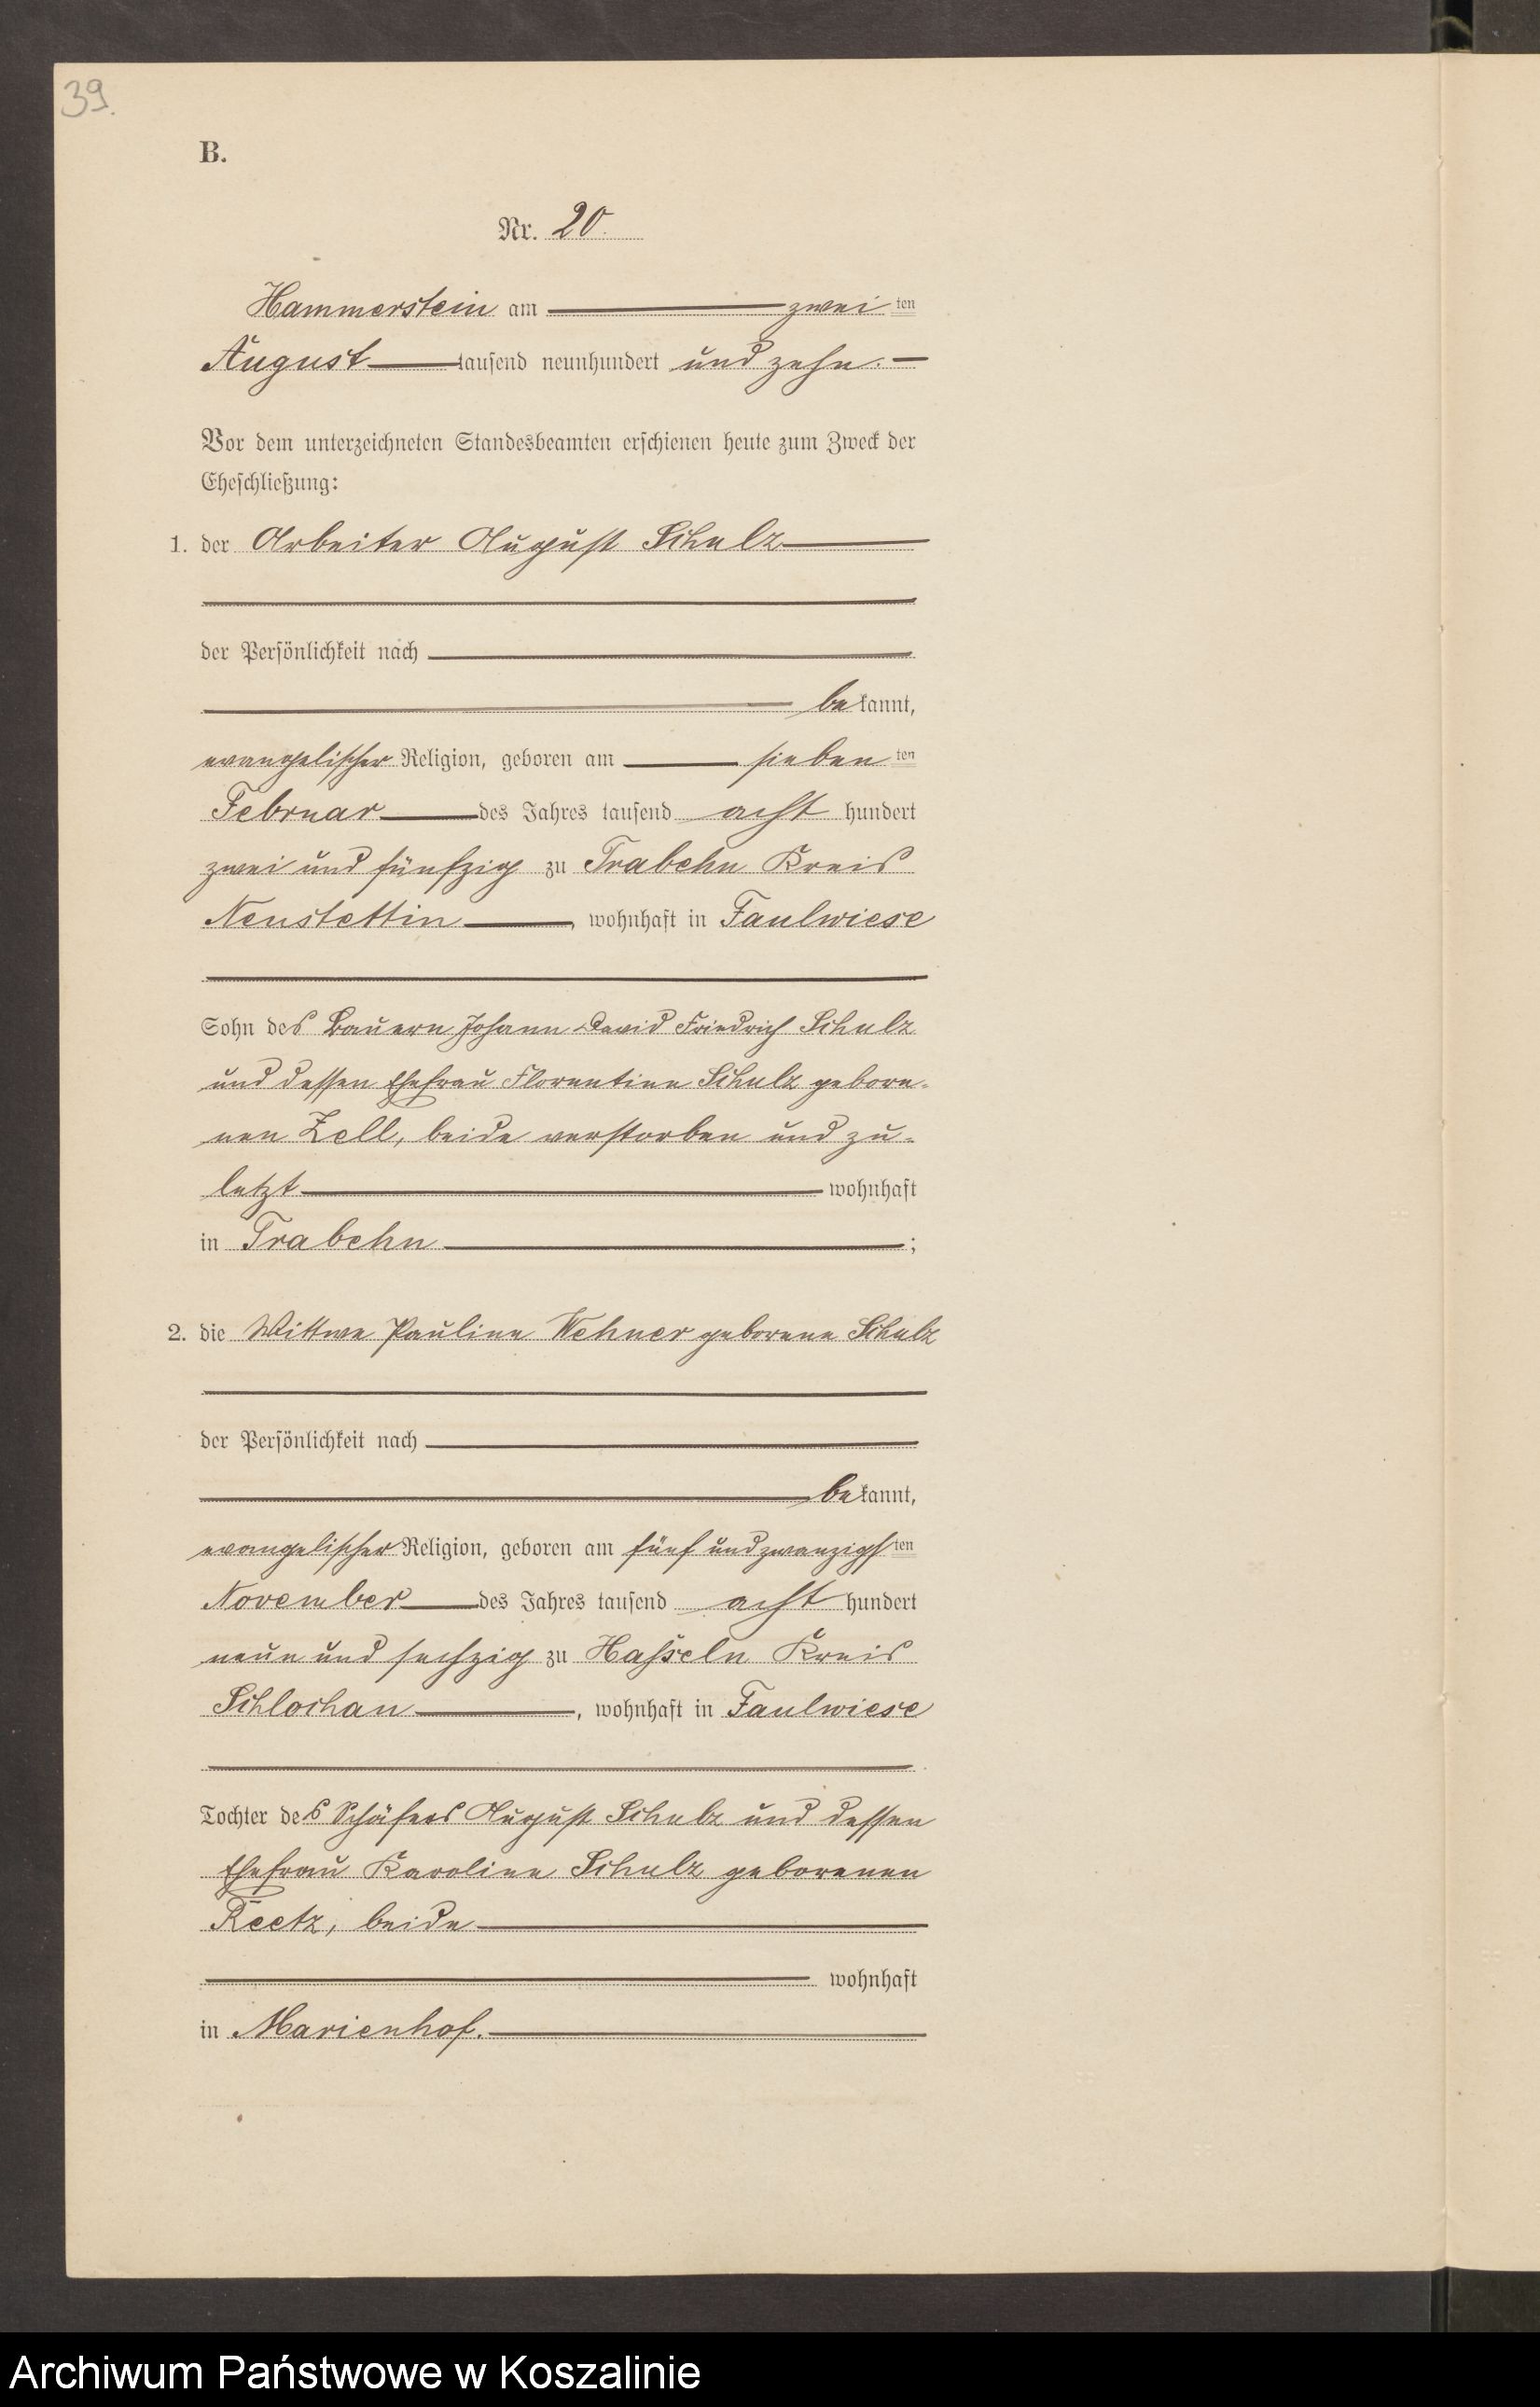 39.
B.
Nr. 20.
Hammerstein am zweiten
August tausend neunhundert und zehn.
Vor dem unterzeichneten Standesbeamten erschienen heute zum Zweck der
Eheschließung:
1. der Arbeiter August Schulz
der Persönlichkeit nach
bekannt,
evangelischer Religion, geboren am siebenten
Februar des Jahres tausend acht hundert
zwei und fünfzig zu Trabehn Kreis
Neustettin, wohnhaft in Faulwiese
Sohn des Bauern Johann David Friedrich Schulz
und dessen Ehefrau Florentine Schulz gebore-
nen Zell, beide verstorben und zu-
letzt wohnhaft
in Trabehn;
2. die Wittwe Pauline Wehner geborene Schulz
der Persönlichkeit nach
bekannt,
evangelischer Religion, geboren am fünf und zwanzigsten
November des Jahres tausend acht hundert
neun und sechzig zu Hasseln Kreis
Schlochau, wohnhaft in Faulwiese
Tochter des Schäfers August Schulz und dessen
Ehefrau Karoline Schulz geborenen
Reetz, beide
wohnhaft
in Marienhof.
Archiwum Państwowe w Koszalinie